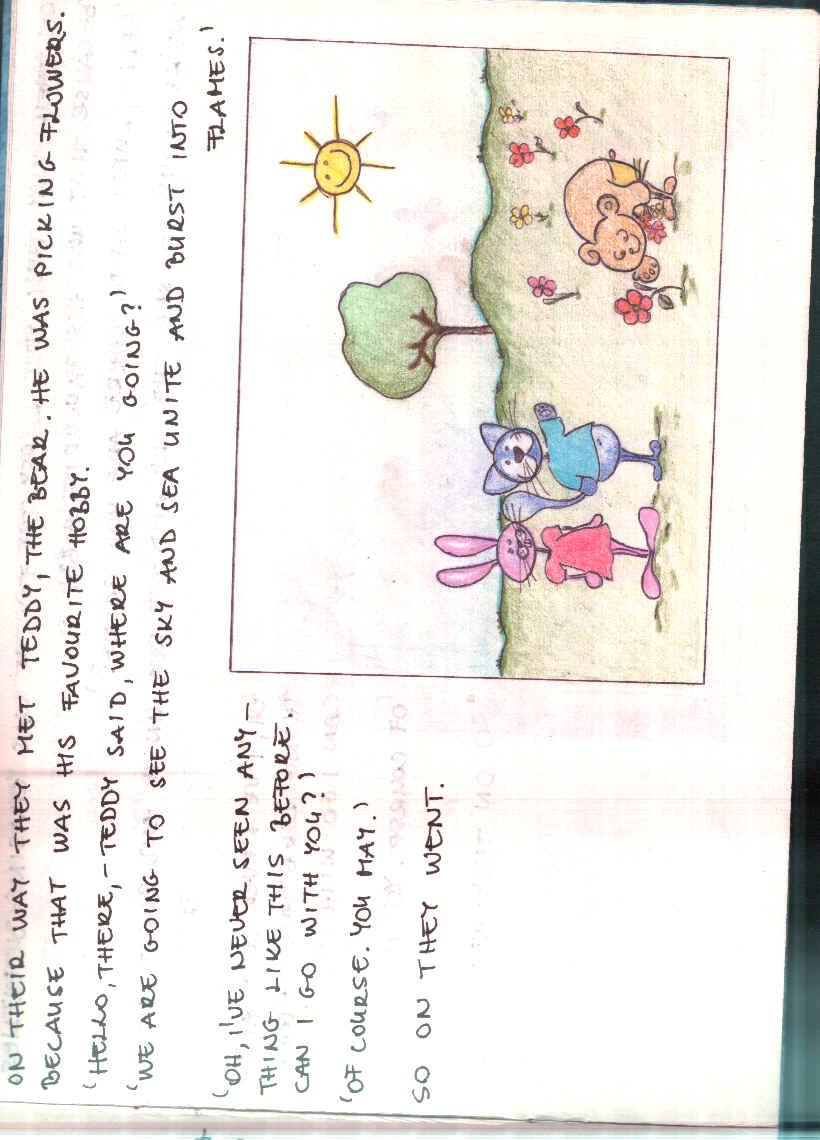 ON THEIR WAY THEY MET TEDDY, THE BEAR. HE WAS PICKING FLOWERS.
BECAUSE THAT WAS HIS FAVOURITE HOBBY.
'HELLO, THERE, – TEDDY SAID, WHERE ARE YOU GOING?'
'WE ARE GOING TO SEE THE SKY AND SEA UNITE AND BURST INTO
FLAMES.'
'OH, I'VE NEVER SEEN ANY–
THING LIKE THIS BEFORE.
CAN I GO WITH YOU?'
'OF COURSE. YOU MAY.'
SO ON THEY WENT.